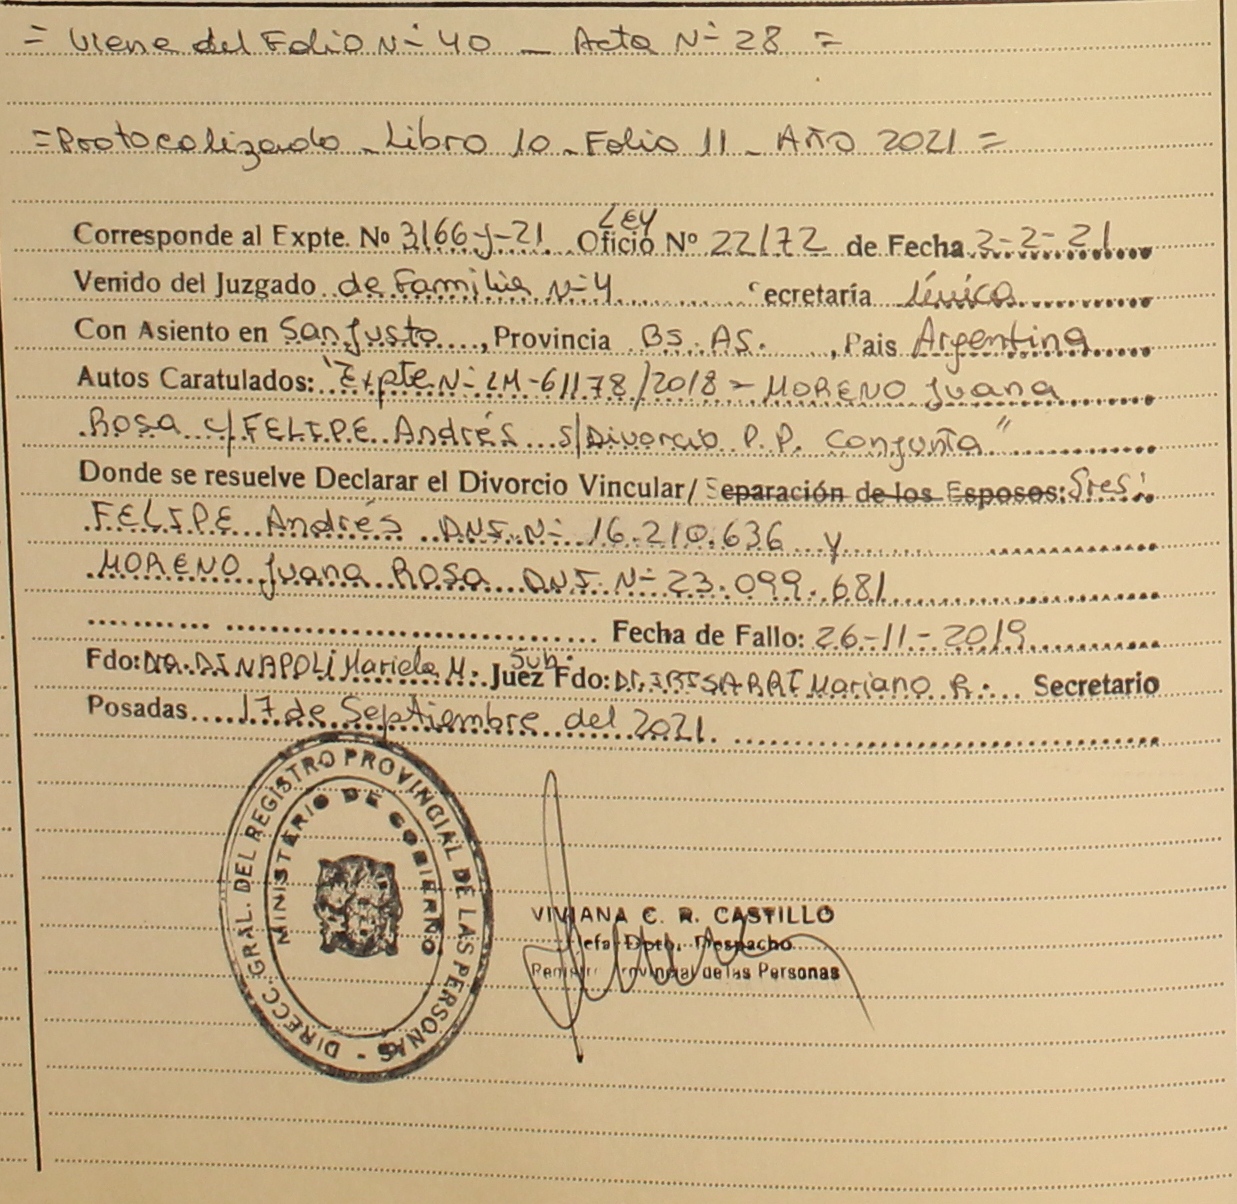 = Viene del Folio Nº 40 _ Acta Nº 28 =
= Protocolizado _ Libro 10 _ Folio 11 _ Año 2021 =
Corresponde al Expte. Nº 3166-J-21 Oficio LEY Nº 22172 de Fecha 2-2-21
Venido del Juzgado de Familia Nº 4 Secretaría Única
Con Asiento en San Justo, Provincia BS. AS., Pais Argentina
Autos Caratulados: "Expte Nº LM-61178/2018 - MORENO Juana
Rosa c/ FELIPE Andrés s/Divorcio P.P. Conjunta"
Donde se resuelve Declarar el Divorcio Vincular/ Separación de los Esposos: Sres:
FELIPE Andrés DNI. Nº 16.210.636 y
MORENO Juana Rosa DNI Nº 23.099.681
Fecha de Fallo: 26-11-2019
Fdo: Dra. DI NAPOLI Mariela M. Juez Sub. Fdo: Dr. IRISARRI Mariano R. Secretario
Posadas 17 de Septiembre del 2021.
DIRECC. GRAL. DEL REGISTRO PROVINCIAL DE LAS PERSONAS -
MINISTERIO DE GOBIERNO
VIVIANA C. R. CASTILLO
Jefa Dpto. Despacho
Registro Provincial de las Personas